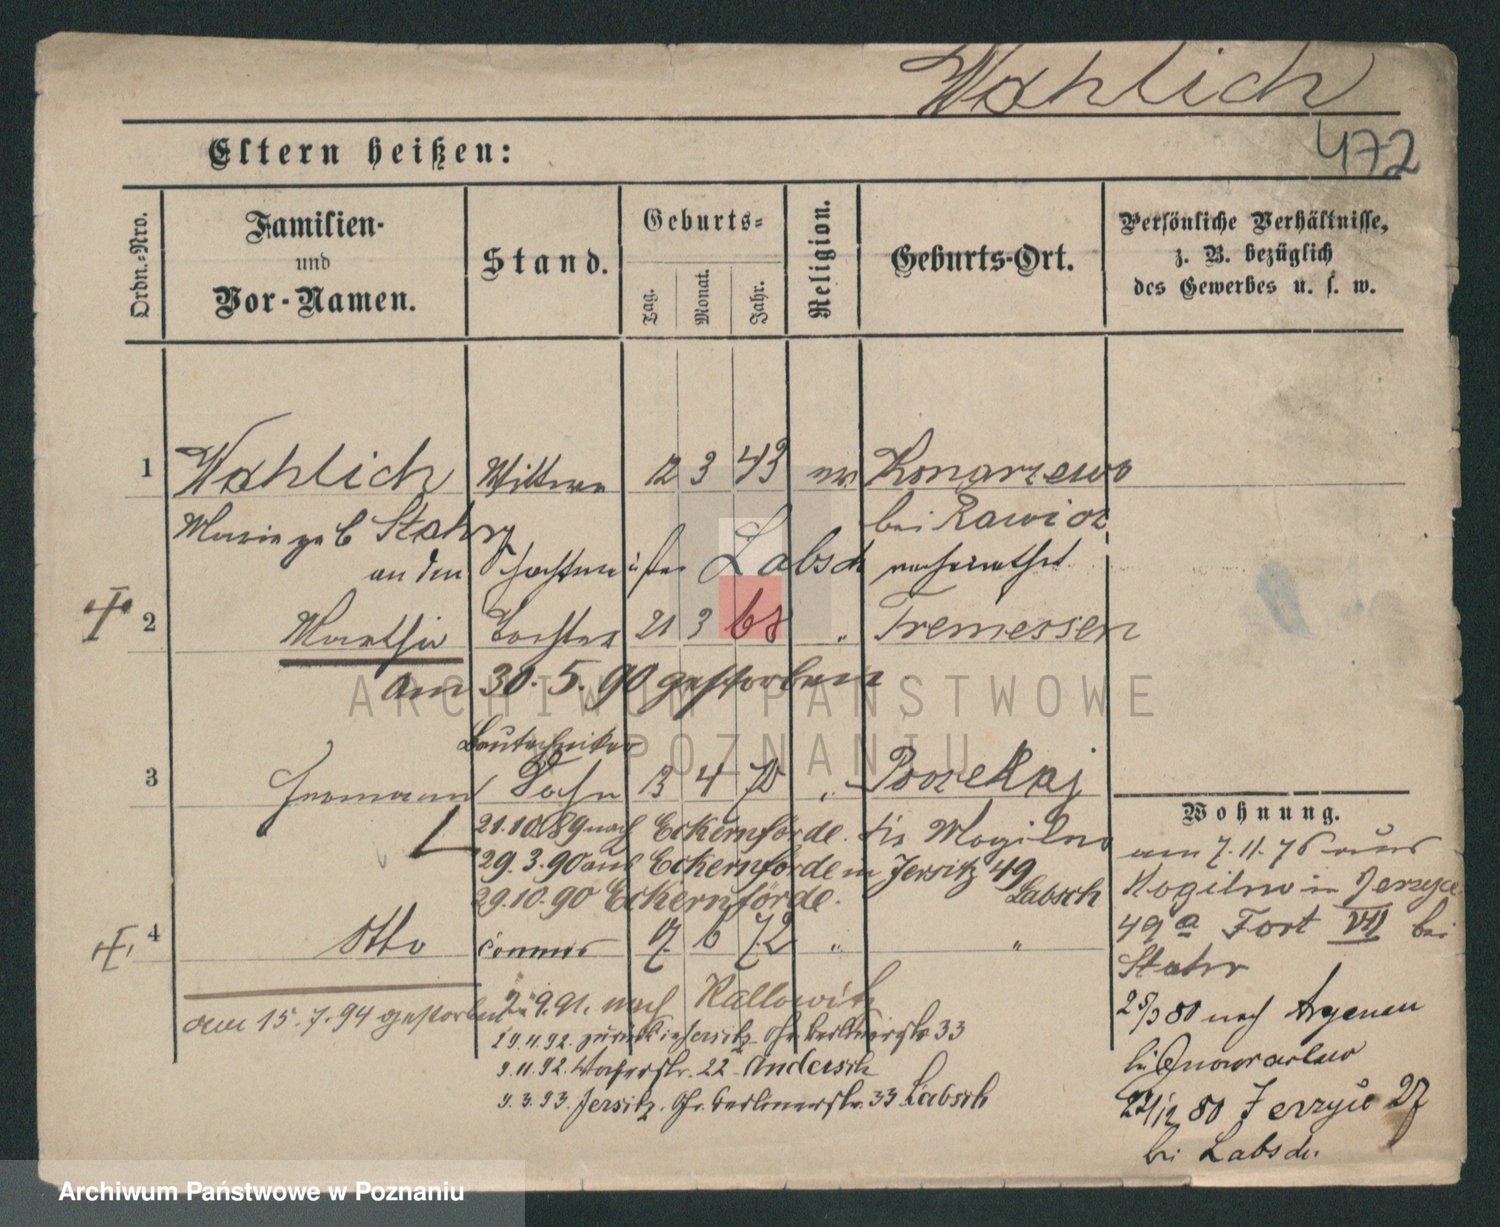 Wahlich
472
Eltern heißen:
Ordn.-Nro.
Familien-
und
Vor-Namen.
Stand.
Geburts-
Tag.
Monat.
Jahr.
Religion.
Geburts-Ort.
Persönliche Verhältnisse,
z. B. bezüglich
des Gewerbes u. s. w.
1 Wahlich Wittwe 12 3 43 ev Konarzewo
Marie geb Stahr bei Rawicz
an den Labsch verheirathet
2 Martha Tochter 21 3 68 " Tremessen
am 30.5.90 gestorben
Bautechniker
3 Hermann Sohn 13 4 70 "
21.10.89 nach Eckernförde. Mogilno
29.3.90 aus Eckernförde in Jersitz 49
Labsch
29.10.90 Eckernförde.
4 Otto 7. 6 72 " "
am 15.7.94 gestorben
2.9.91. nach
29.4.92. zurück Jersitz Gr. Berlinerstr. 33
9.11.92. 22 Andersch
9.3.93. Jersitz. Gr. Berlinerstr. 33 Labsch
Wohnung.
am 7.11.76 aus
Mogilno in Jerzyce
49 a Fort VII bei
Stahr
25/3 80 nach Argenau
bei Inowraclaw
22/12 80 Jerzyce 27
bei Labsch.
ARCHIWUM PAŃSTWOWE
POZNANIU
Archiwum Państwowe w Poznaniu